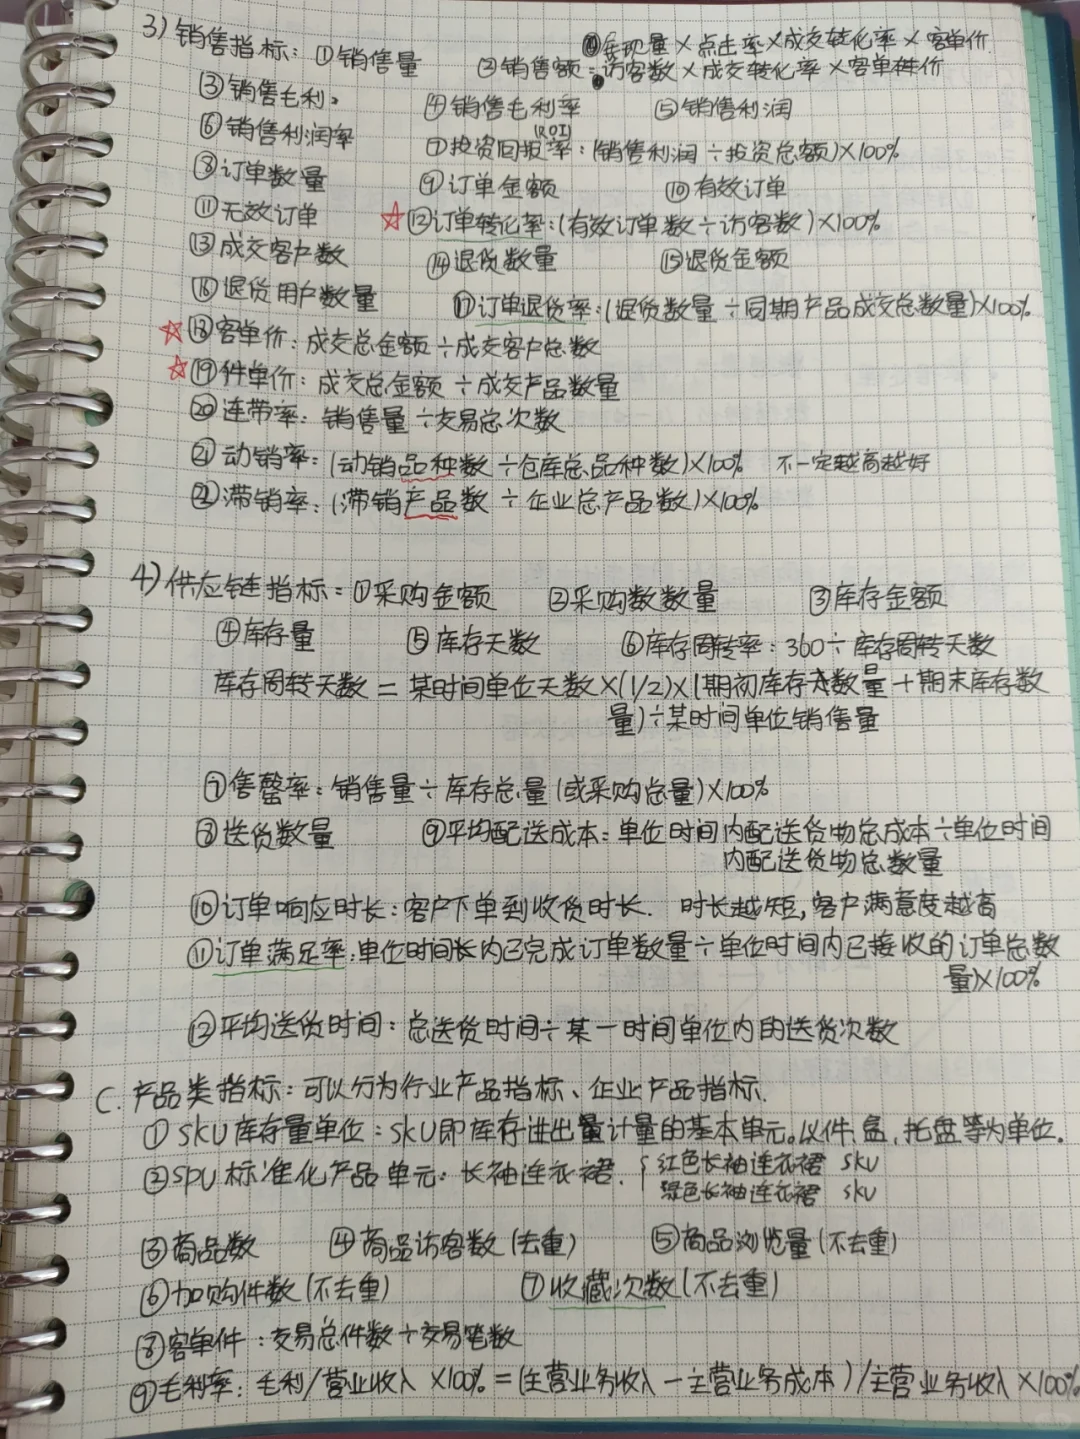 展现量×点击率×成交转化率×客单价
3) 销售指标: ①销售量 ②销售额:访客数×成交转化率×客单价
③销售毛利 ④销售毛利率 ⑤销售利润
⑥销售利润率 ⑦投资回报率(ROI):(销售利润÷投资总额)×100%
⑧订单数量 ⑨订单金额 ⑩有效订单
⑪无效订单 ☆⑫订单转化率:(有效订单数÷访客数)×100%
⑬成交客户数 ⑭退货数量 ⑮退货金额
⑯退货用户数量 ⑰订单退货率:(退货数量÷同期产品成交总数量)×100%
☆⑱客单价:成交总金额÷成交客户总数
☆⑲件单价:成交总金额÷成交产品数量
⑳连带率:销售量÷交易总次数
㉑动销率:(动销品种数÷仓库总品种数)×100% 不一定越高越好
㉒滞销率:(滞销产品数÷企业总产品数)×100%
4) 供应链指标:①采购金额 ②采购数数量 ③库存金额
④库存量 ⑤库存天数 ⑥库存周转率:360÷库存周转天数
库存周转天数=某时间单位天数×(1/2)×(期初库存数量+期末库存数
量)÷某时间单位销售量
⑦售罄率:销售量÷库存总量(或采购总量)×100%
⑧送货数量 ⑨平均配送成本:单位时间内配送货物总成本÷单位时间
内配送货物总数量
⑩订单响应时长:客户下单到收货时长. 时长越短,客户满意度越高
⑪订单满足率:单位时间长内已完成订单数量÷单位时间内已接收的订单总数
量)×100%
⑫平均送货时间:总送货时间÷某一时间单位内的送货次数
C. 产品类指标:可以分为行业产品指标、企业产品指标.
①SKU库存量单位:SKU即库存进出量计量的基本单元。以件、盒、托盘等为单位.
②SPU标准化产品单元:长袖连衣裙.{红色长袖连衣裙 SKU
绿色长袖连衣裙 SKU
③商品数 ④商品访客数(去重) ⑤商品浏览量(不去重)
⑥加购件数(不去重) ⑦收藏次数(不去重)
⑧客单件:交易总件数÷交易笔数
⑨毛利率:毛利/营业收入×100%=(主营业务收入-主营业务成本)/主营业务收入×100%